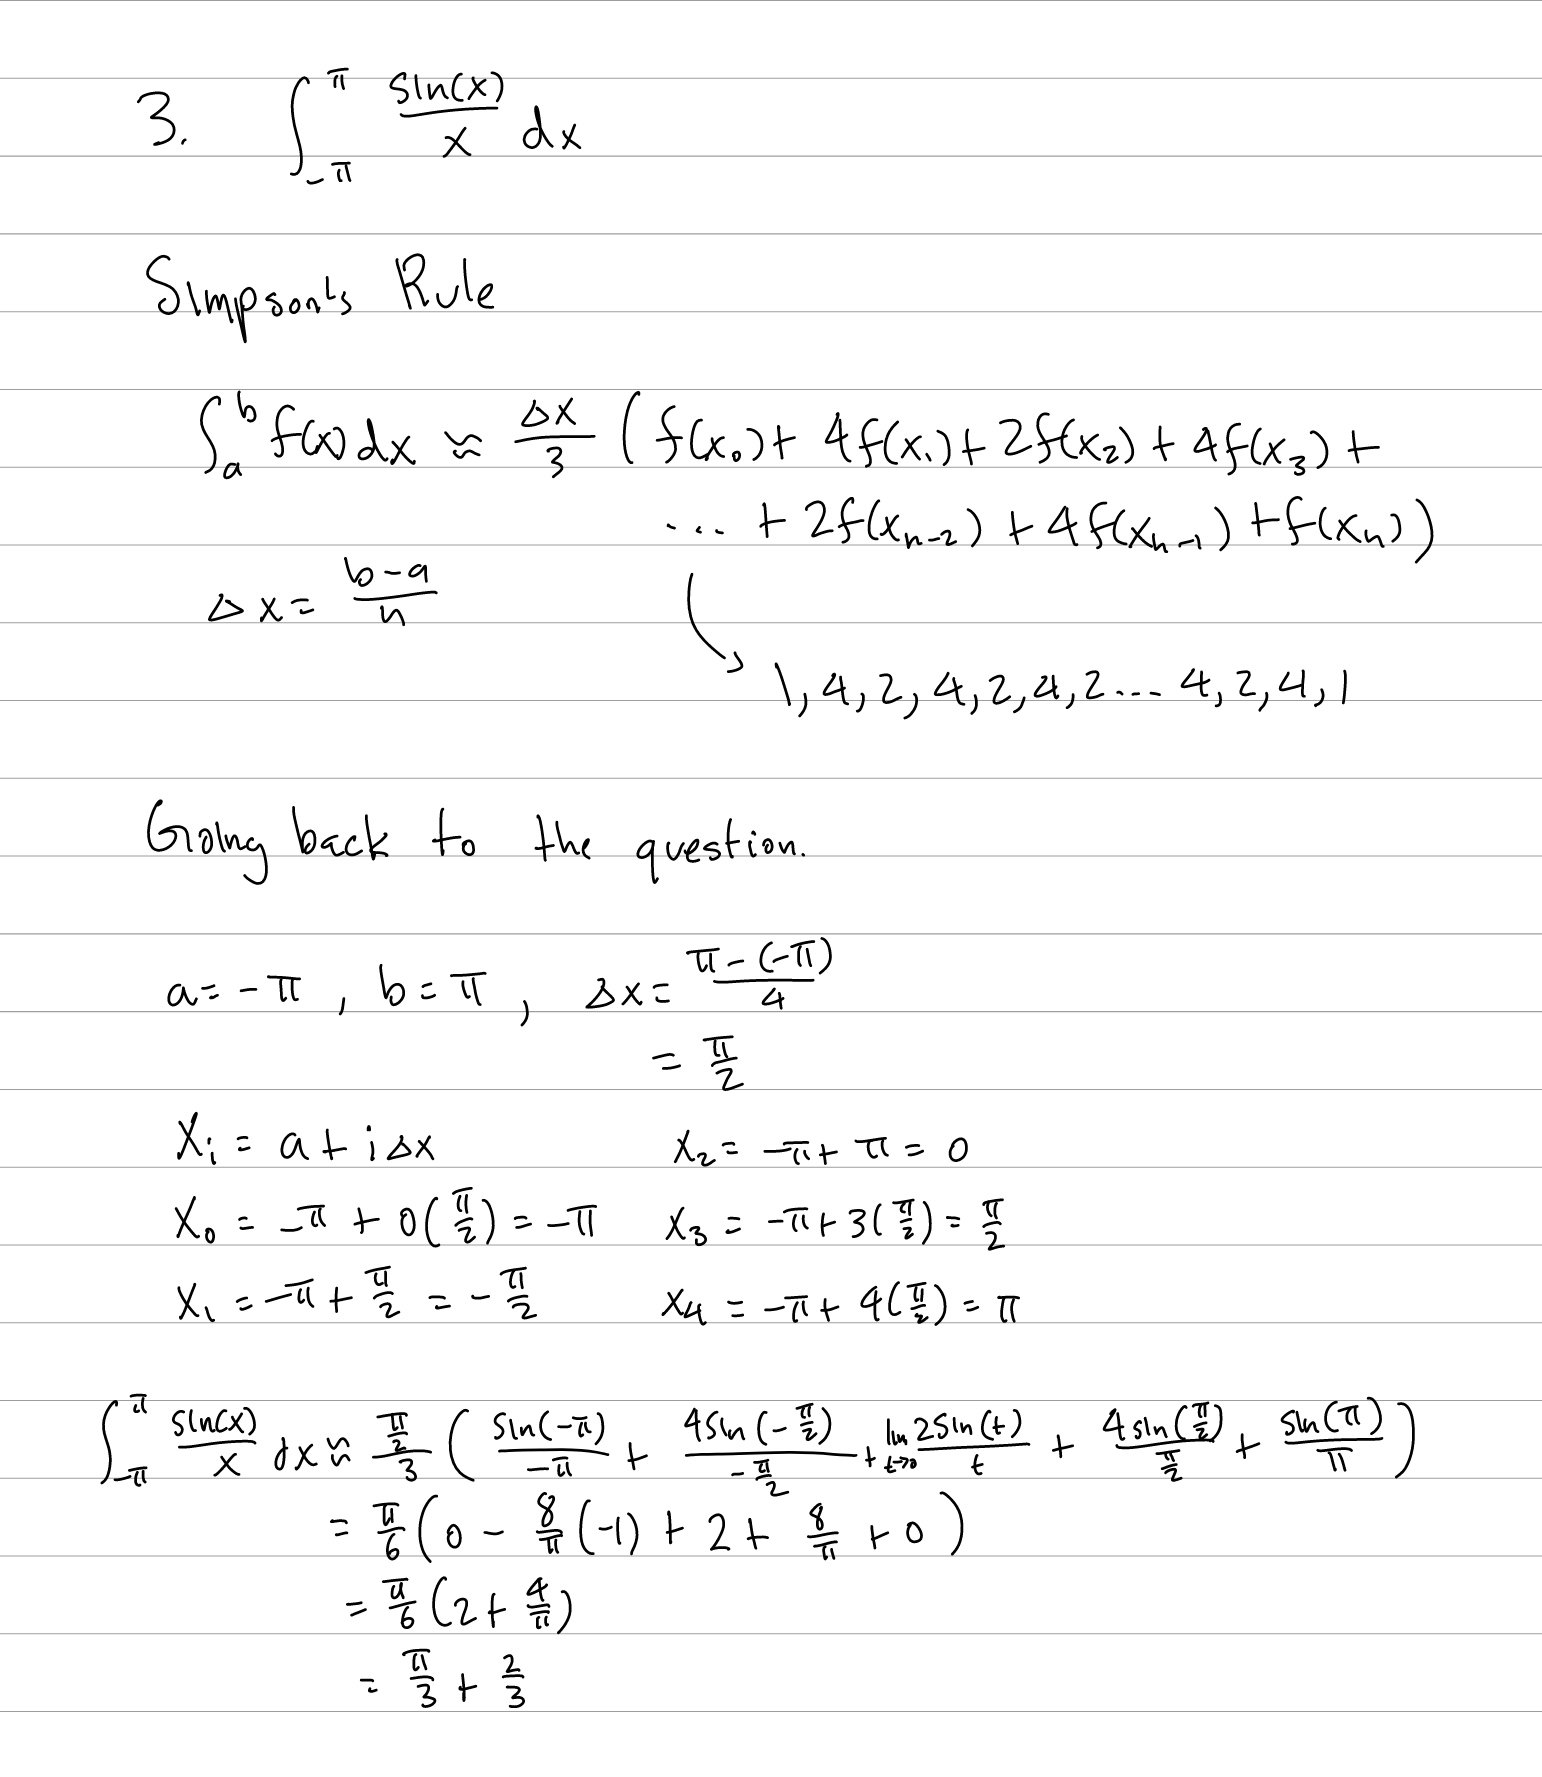 3. ∫_{-π}^{π} sin(x)/x dx
Simpson's Rule
∫_a^b f(x) dx ≈ Δx/3 ( f(x₀) + 4f(x₁) + 2f(x₂) + 4f(x₃) +
... + 2f(x_{n-2}) + 4f(x_{n-1}) + f(x_n) )
Δx = (b-a)/n
1, 4, 2, 4, 2, 4, 2 ... 4, 2, 4, 1
Going back to the question.
a = -π , b = π , Δx = (π - (-π))/4
= π/2
x_i = a + iΔx x₂ = -π + π = 0
x₀ = -π + 0(π/2) = -π x₃ = -π + 3(π/2) = π/2
x₁ = -π + π/2 = -π/2 x₄ = -π + 4(π/2) = π
∫_{-π}^{π} sin(x)/x dx ≈ (π/2)/3 ( sin(-π)/(-π) + 4sin(-π/2)/(-π/2) + lim_{t→0} 2sin(t)/t + 4sin(π/2)/(π/2) + sin(π)/π )
= π/6 ( 0 - 8/π (-1) + 2 + 8/π + 0 )
= π/6 ( 2 + 4/π )
= π/3 + 2/3